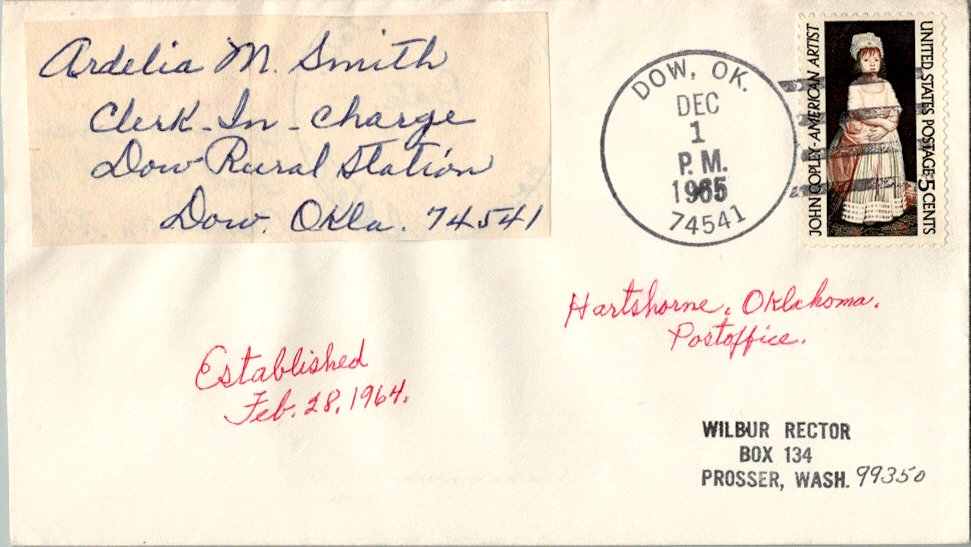 Ardelia M. Smith
Clerk-In-Charge
Dow Rural Station
Dow. Okla. 74541
DOW, OK.
DEC
1
P.M.
1965
74541
JOHN COPLEY-AMERICAN ARTIST
UNITED STATES POSTAGE 5 CENTS
Hartshorne. Oklahoma.
Postoffice.
Established
Feb. 28, 1964.
WILBUR RECTOR
BOX 134
PROSSER, WASH. 99350